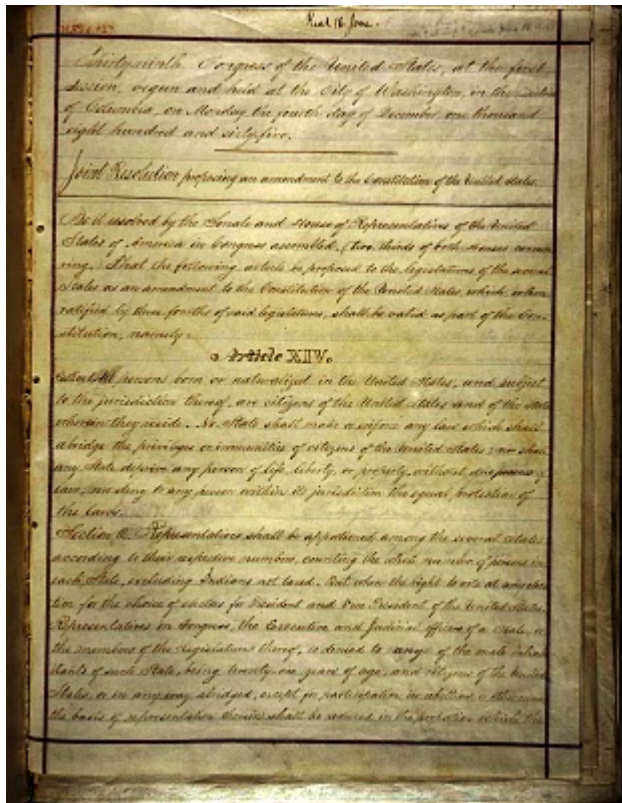 Recd 16 June.
Thirty-ninth Congress of the United States, at the first
Session, begun and held at the City of Washington, in the District
of Columbia, on Monday the fourth day of December, one thousand
eight hundred and sixty-five.
Joint Resolution proposing an amendment to the Constitution of the United States.
Be it resolved by the Senate and House of Representatives of the United
States of America in Congress assembled, (two thirds of both Houses concur
ring,) That the following article be proposed to the legislatures of the several
States as an amendment to the Constitution of the United States, which, when
ratified by three fourths of said legislatures, shall be valid as part of the Con-
stitution, namely:
Article XIV.
Section 1. All persons born or naturalized in the United States, and subject
to the jurisdiction thereof, are citizens of the United States and of the State
wherein they reside. No State shall make or enforce any law which shall
abridge the privileges or immunities of citizens of the United States; nor shall
any State deprive any person of life, liberty, or property, without due process of
law, nor deny to any person within its jurisdiction the equal protection of
the laws.
Section 2. Representatives shall be apportioned among the several States
according to their respective numbers, counting the whole number of persons in
each State, excluding Indians not taxed. But when the right to vote at any elec-
tion for the choice of electors for President and Vice President of the United States,
Representatives in Congress, the Executive and Judicial officers of a State, or
the members of the Legislature thereof, is denied to any of the male inhabi
tants of such State, being twenty-one years of age, and citizens of the United
States, or in any way abridged, except for participation in rebellion or other crime,
the basis of representation therein shall be reduced in the proportion which the